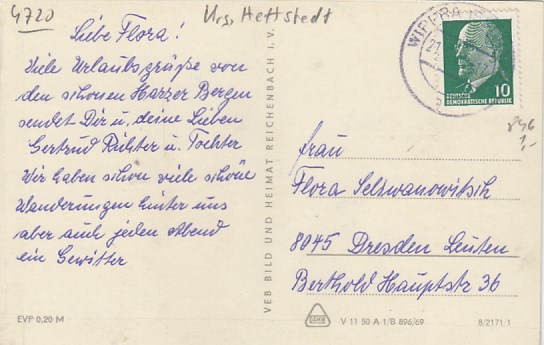 4720
Urs, Hettstedt
Liebe Flora!
Viele Urlaubsgrüße von
den schönen Harzer Bergen
sendet Dir u, deine Lieben
Gertrud Richter u. Tochter
Wir haben schon viele schöne
Wanderungen hinter uns
aber auch jeden Abend
ein Gewitter
EVP 0,20 M
VEB BILD UND HEIMAT REICHENBACH I. V.
WIPPRA
21.
10
DEUTSCHE
DEMOKRATISCHE REPUBLIK
1,-
Frau
Flora Selswanowitsih
8045 Dresden Leuten
Berthold Hauptstr 36
V 11 50 A 1/B 896/69
8/2171/1